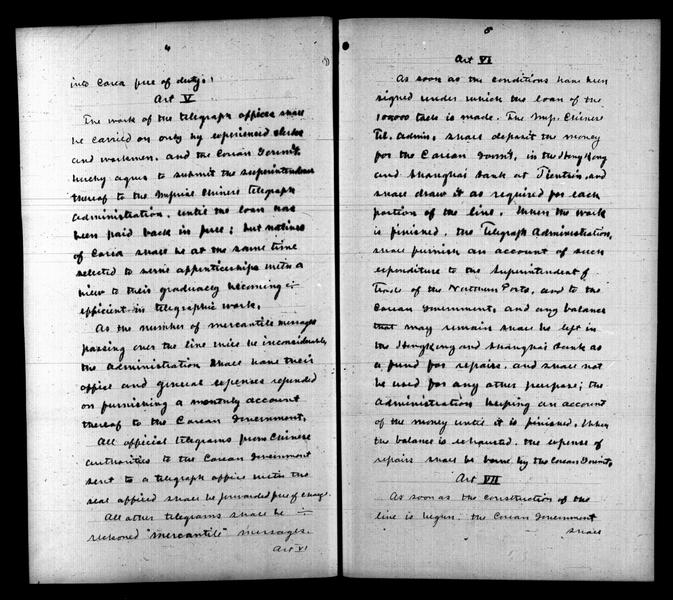 4
into Corea free of duty.
Art V
The work of the telegraph offices shall
be carried on only by experienced clerks
and workmen, and the Corean Governmt.
hereby agrees to submit the superintendence
thereof to the Imperial Chinese telegraph
administration, until the loan has
been paid back in full; but natives
of Corea shall be at the same time
selected to serve apprenticeships with a
view to their gradually becoming
efficient in telegraphic work.
As the number of mercantile messages
passing over the line will be inconsiderable,
the administration shall have their
office and general expenses refunded
on furnishing a monthly account
thereof to the Corean Government.
All official telegrams from Chinese
authorities to the Corean Government
sent to a telegraph office with the
seal affixed shall be forwarded free of charge.
All other telegrams shall be
reckoned "mercantile" messages.
Art VI
5
Art VI
As soon as the conditions have been
signed under which the loan of the
100000 taels is made. The Imp. Chinese
Tel. Admin. shall deposit the money
for the Corean Govmt, in the Hong Kong
and Shanghai Bank at Tientsin, and
shall draw it as required for each
portion of the line. When the work
is finished, the Telegraph Administration,
shall furnish an account of such
expenditure to the Superintendent of
Trade of the Northern Ports, and to the
Corean Government, and any balance
that may remain shall be left in
the Hong Kong and Shanghai Bank as
a fund for repairs, and shall not
be used for any other purpose; the
Administration keeping an account
of the money until it is finished. When
the balance is exhausted, the expense of
repairs shall be borne by the Corean Govmt.
Art VII
As soon as the construction of the
line is begun, the Corean Government
shall